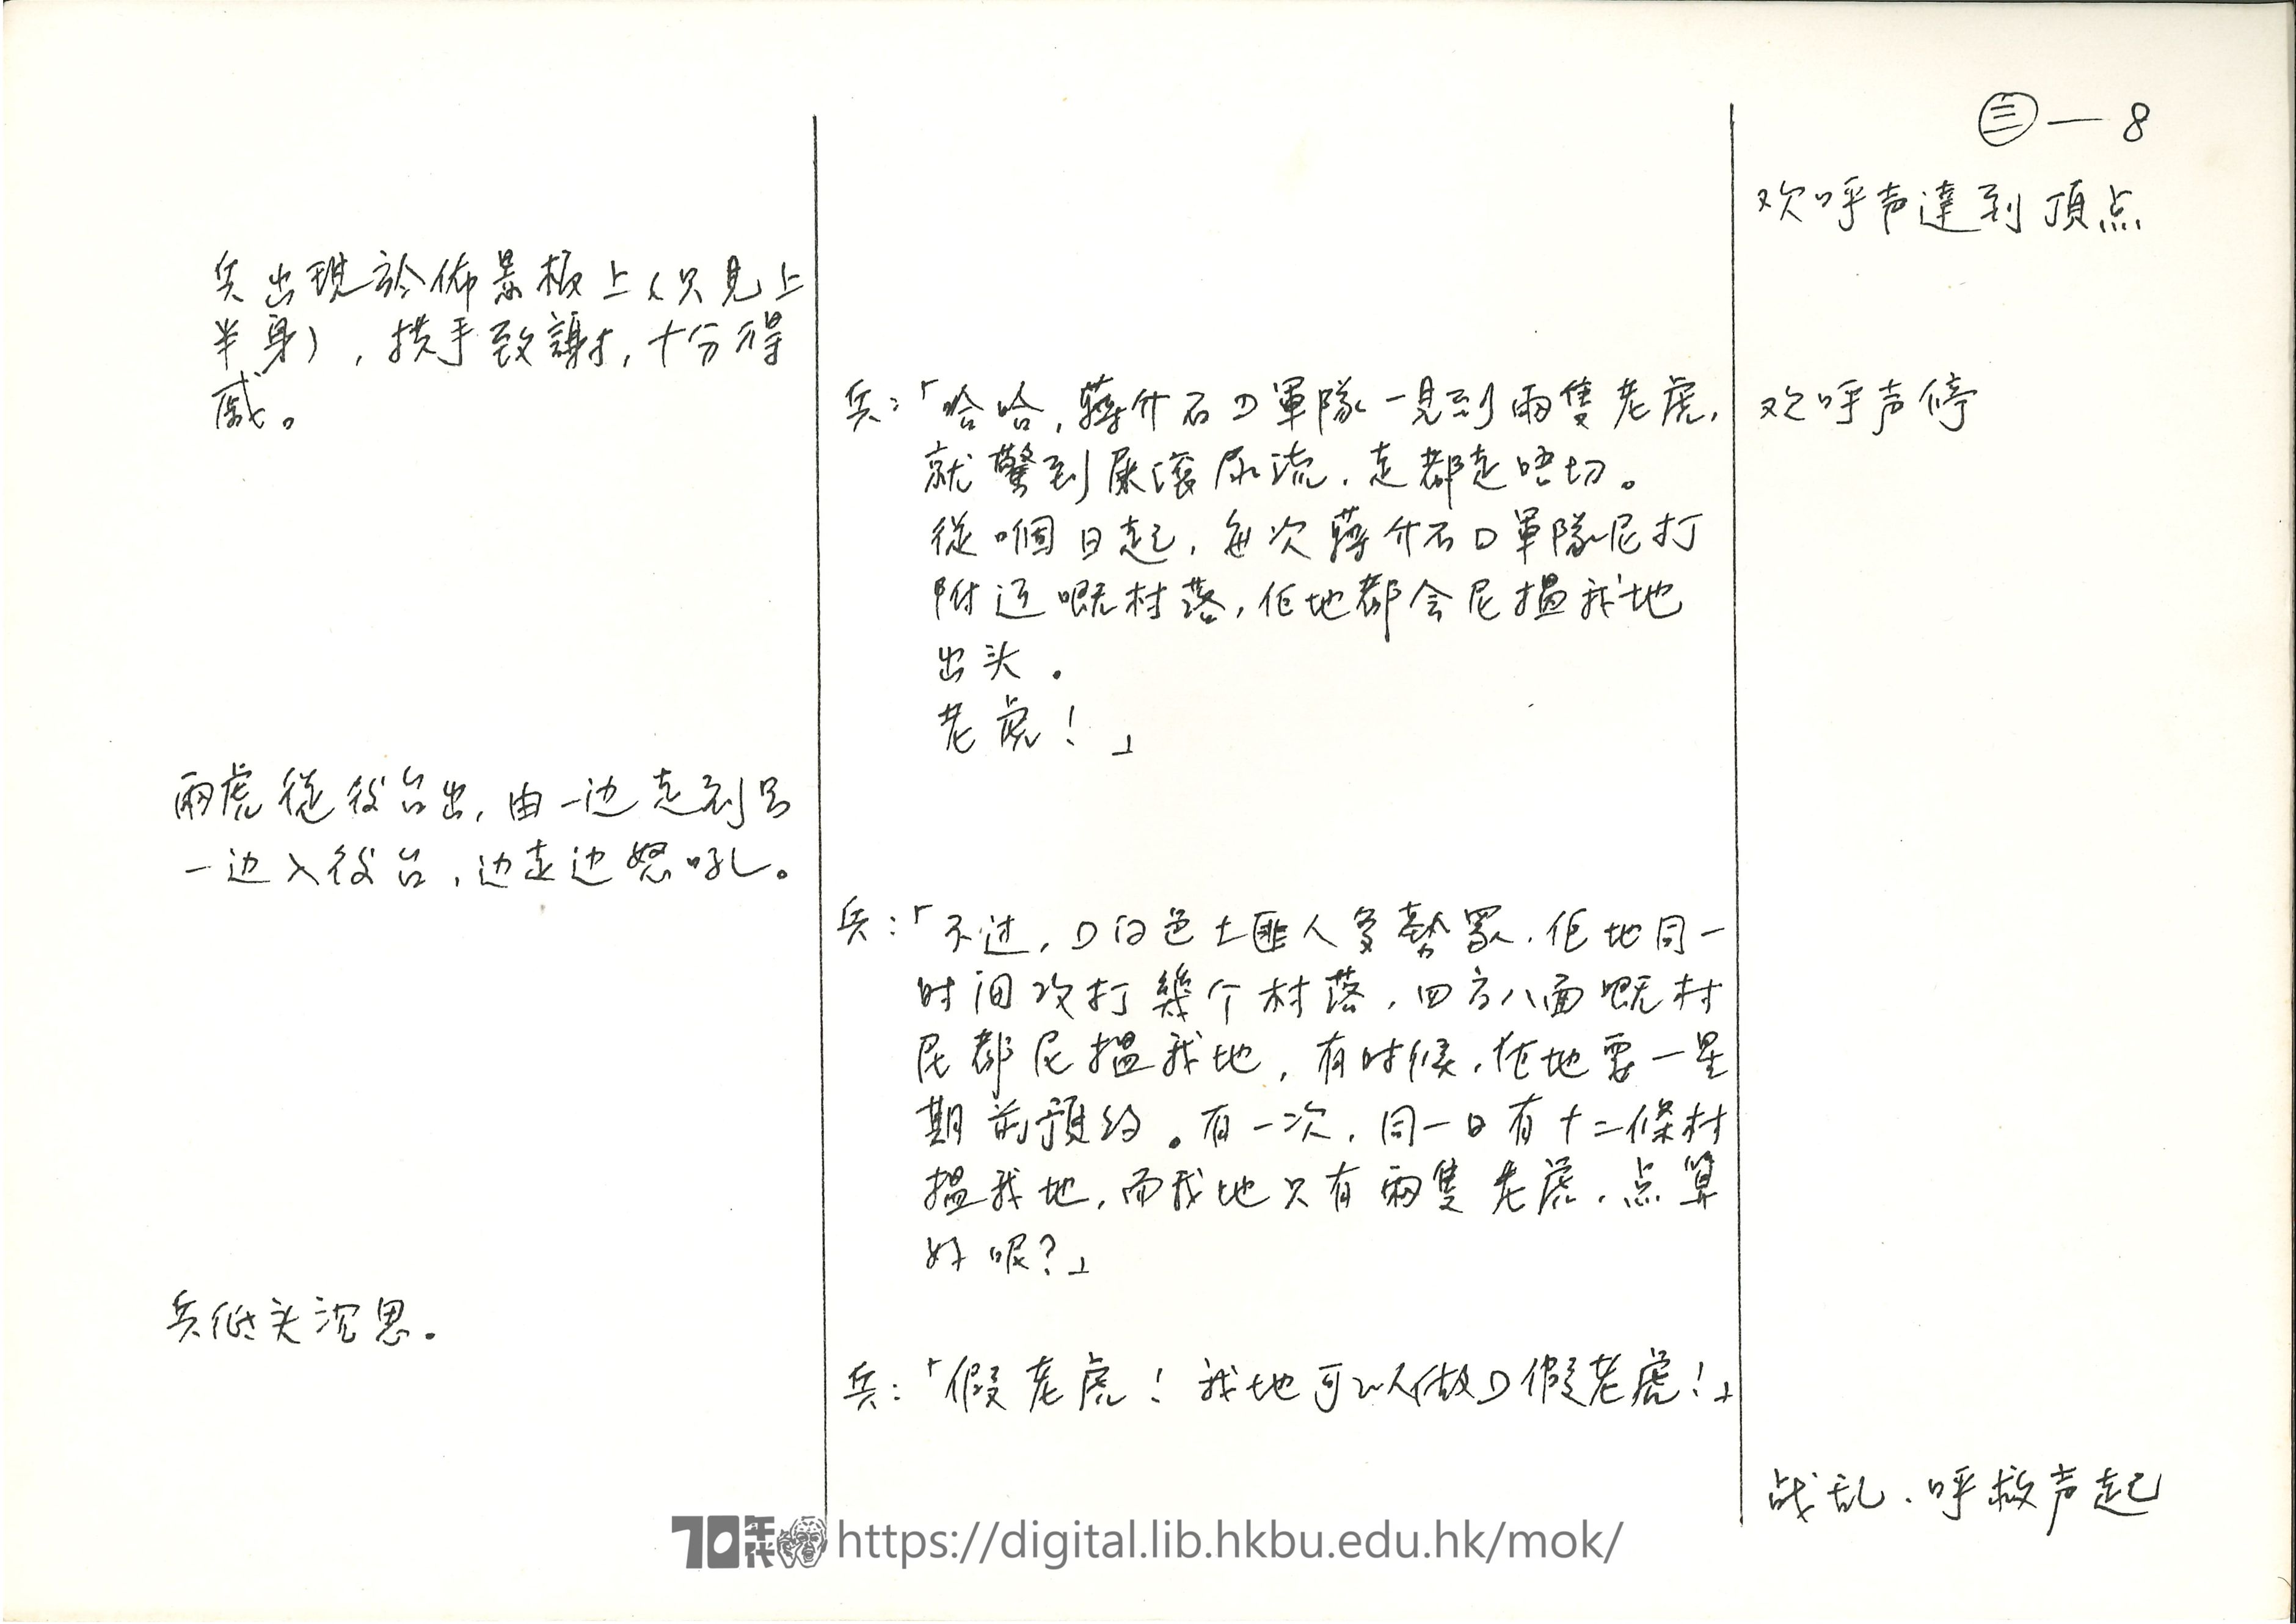 ㊂—8
欢呼声達到頂点
兵出現於佈景板上(只見上
半身)，拱手致謝，十分得
戚。
兵：「哈哈，蔣介石D軍隊一見到兩隻老虎，
欢呼声停
就驚到屎滚尿流，走都走唔切。
從嗰日起，每次蔣介石D軍隊尼打
附近嘅村落，佢地都会尼搵我地
出头。
老虎！」
兩虎從後台出，由一边走到另
一边入後台，边走边怒吼。
兵：「不过，D白色土匪人多勢眾，佢地同一
时间攻打幾个村落，四方八面嘅村
民都尼搵我地，有时候，佢地要一星
期前預约。有一次，同一日有十二條村
搵我地，而我地只有兩隻老虎，点算
好呢？」
兵低头沉思。
兵：「假老虎！我地可以做D假老虎！」
战乱、呼救声起
70年代 https://digital.lib.hkbu.edu.hk/mok/